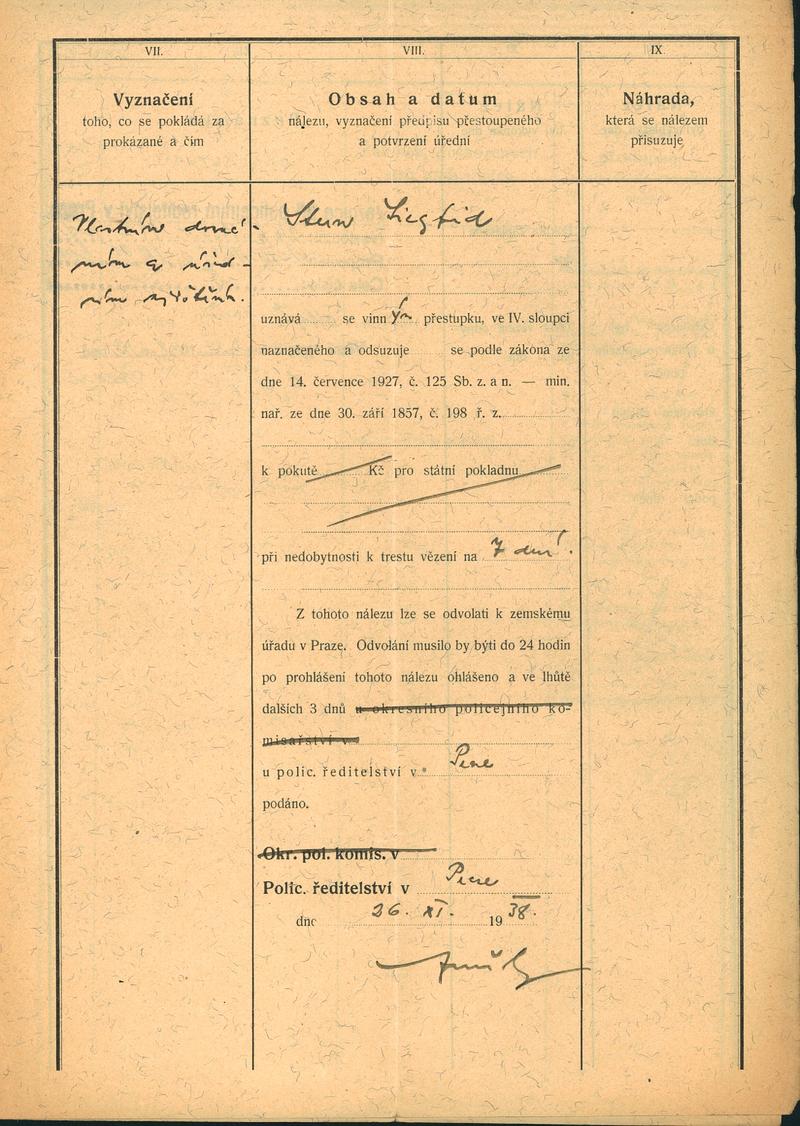 VII.
Vyznačení
toho, co se pokládá za
prokázané a čím
VIII.
Obsah a datum
nálezu, vyznačení předpisu přestoupeného
a potvrzení úřední
IX
Náhrada,
která se nálezem
přisuzuje
Vlastním doznání
Stern Siegfrid
uznává se vinným přestupku, ve IV. sloupci
naznačeného a odsuzuje se podle zákona ze
dne 14. července 1927, č. 125 Sb. z. a n. — min.
nař. ze dne 30. září 1857, č. 198 ř. z.
k pokutě Kč pro státní pokladnu
při nedobytnosti k trestu vězení na 7 dní.
Z tohoto nálezu lze se odvolati k zemskému
úřadu v Praze. Odvolání musilo by býti do 24 hodin
po prohlášení tohoto nálezu ohlášeno a ve lhůtě
dalších 3 dnů u okresního policejního ko-
misařství v
u polic. ředitelství v
podáno.
Okr. pol. komis. v
Polic. ředitelství v
dne 26. XI. 1938.